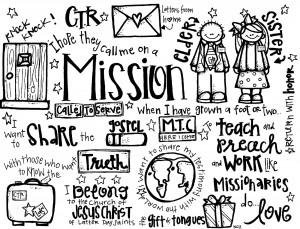 KNOCK KNOCK!
CTR
Letters from home
I hope they call me on a
Mission
ELDER
SISTER
CALLED TO SERVE
when I have grown a foot or two...
RETURN WITH HONOR
I want to SHARE the gospel
MTC
HERE I COME
teach and Preach and WORK like Missionaries do...
with those who want to know the Truth
I want to share my testimony with the world
CTR
I Belong to the Church of JESUS CHRIST of Latter Day Saints
the gift of tongues
LOVE